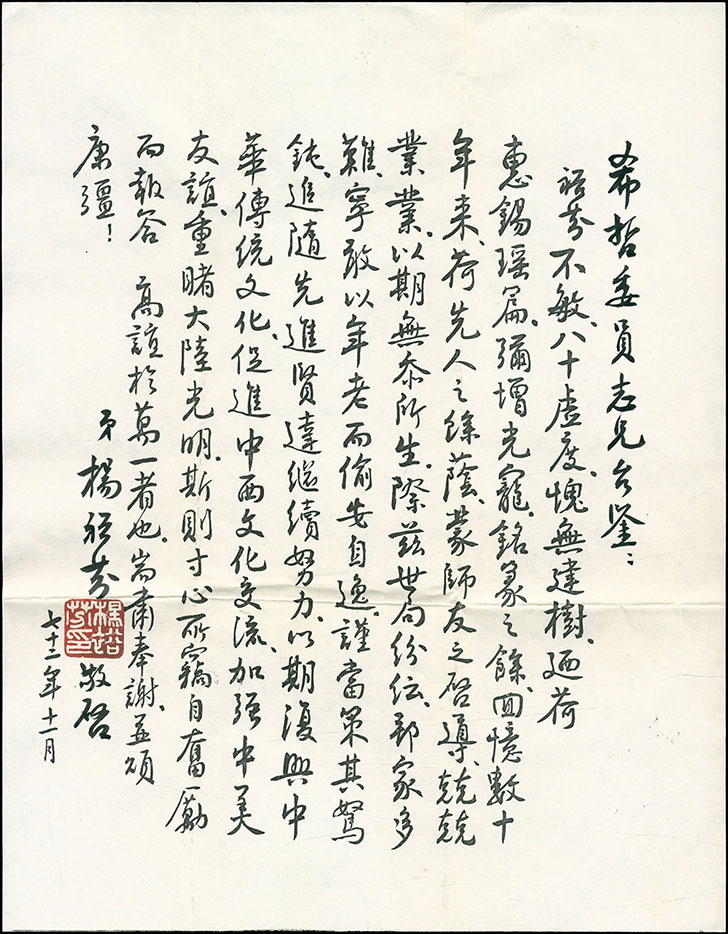 希哲委員志兄台鑒：
裕芬不敏、八十虛度、愧無建樹、迺荷
惠錫瑶篇、彌增光寵、銘篆之餘、回憶數十
年来、荷先人之餘蔭、蒙師友之啓導、兢兢
業業、以期無忝所生、際兹世局纷纭、邦家多
難、寧敢以年老而偷安自逸、謹當策其駑
鈍、追隨先進賢達継續努力、以期復興中
華傳統文化、促進中西文化交流、加强中美
友誼、重睹大陸光明、斯則寸心所竊自奮勵
而報答　高誼於萬一者也。耑肅奉謝、並頌
康彊！
弟楊裕芬敬啓
楊裕芬印
七十三年十一月